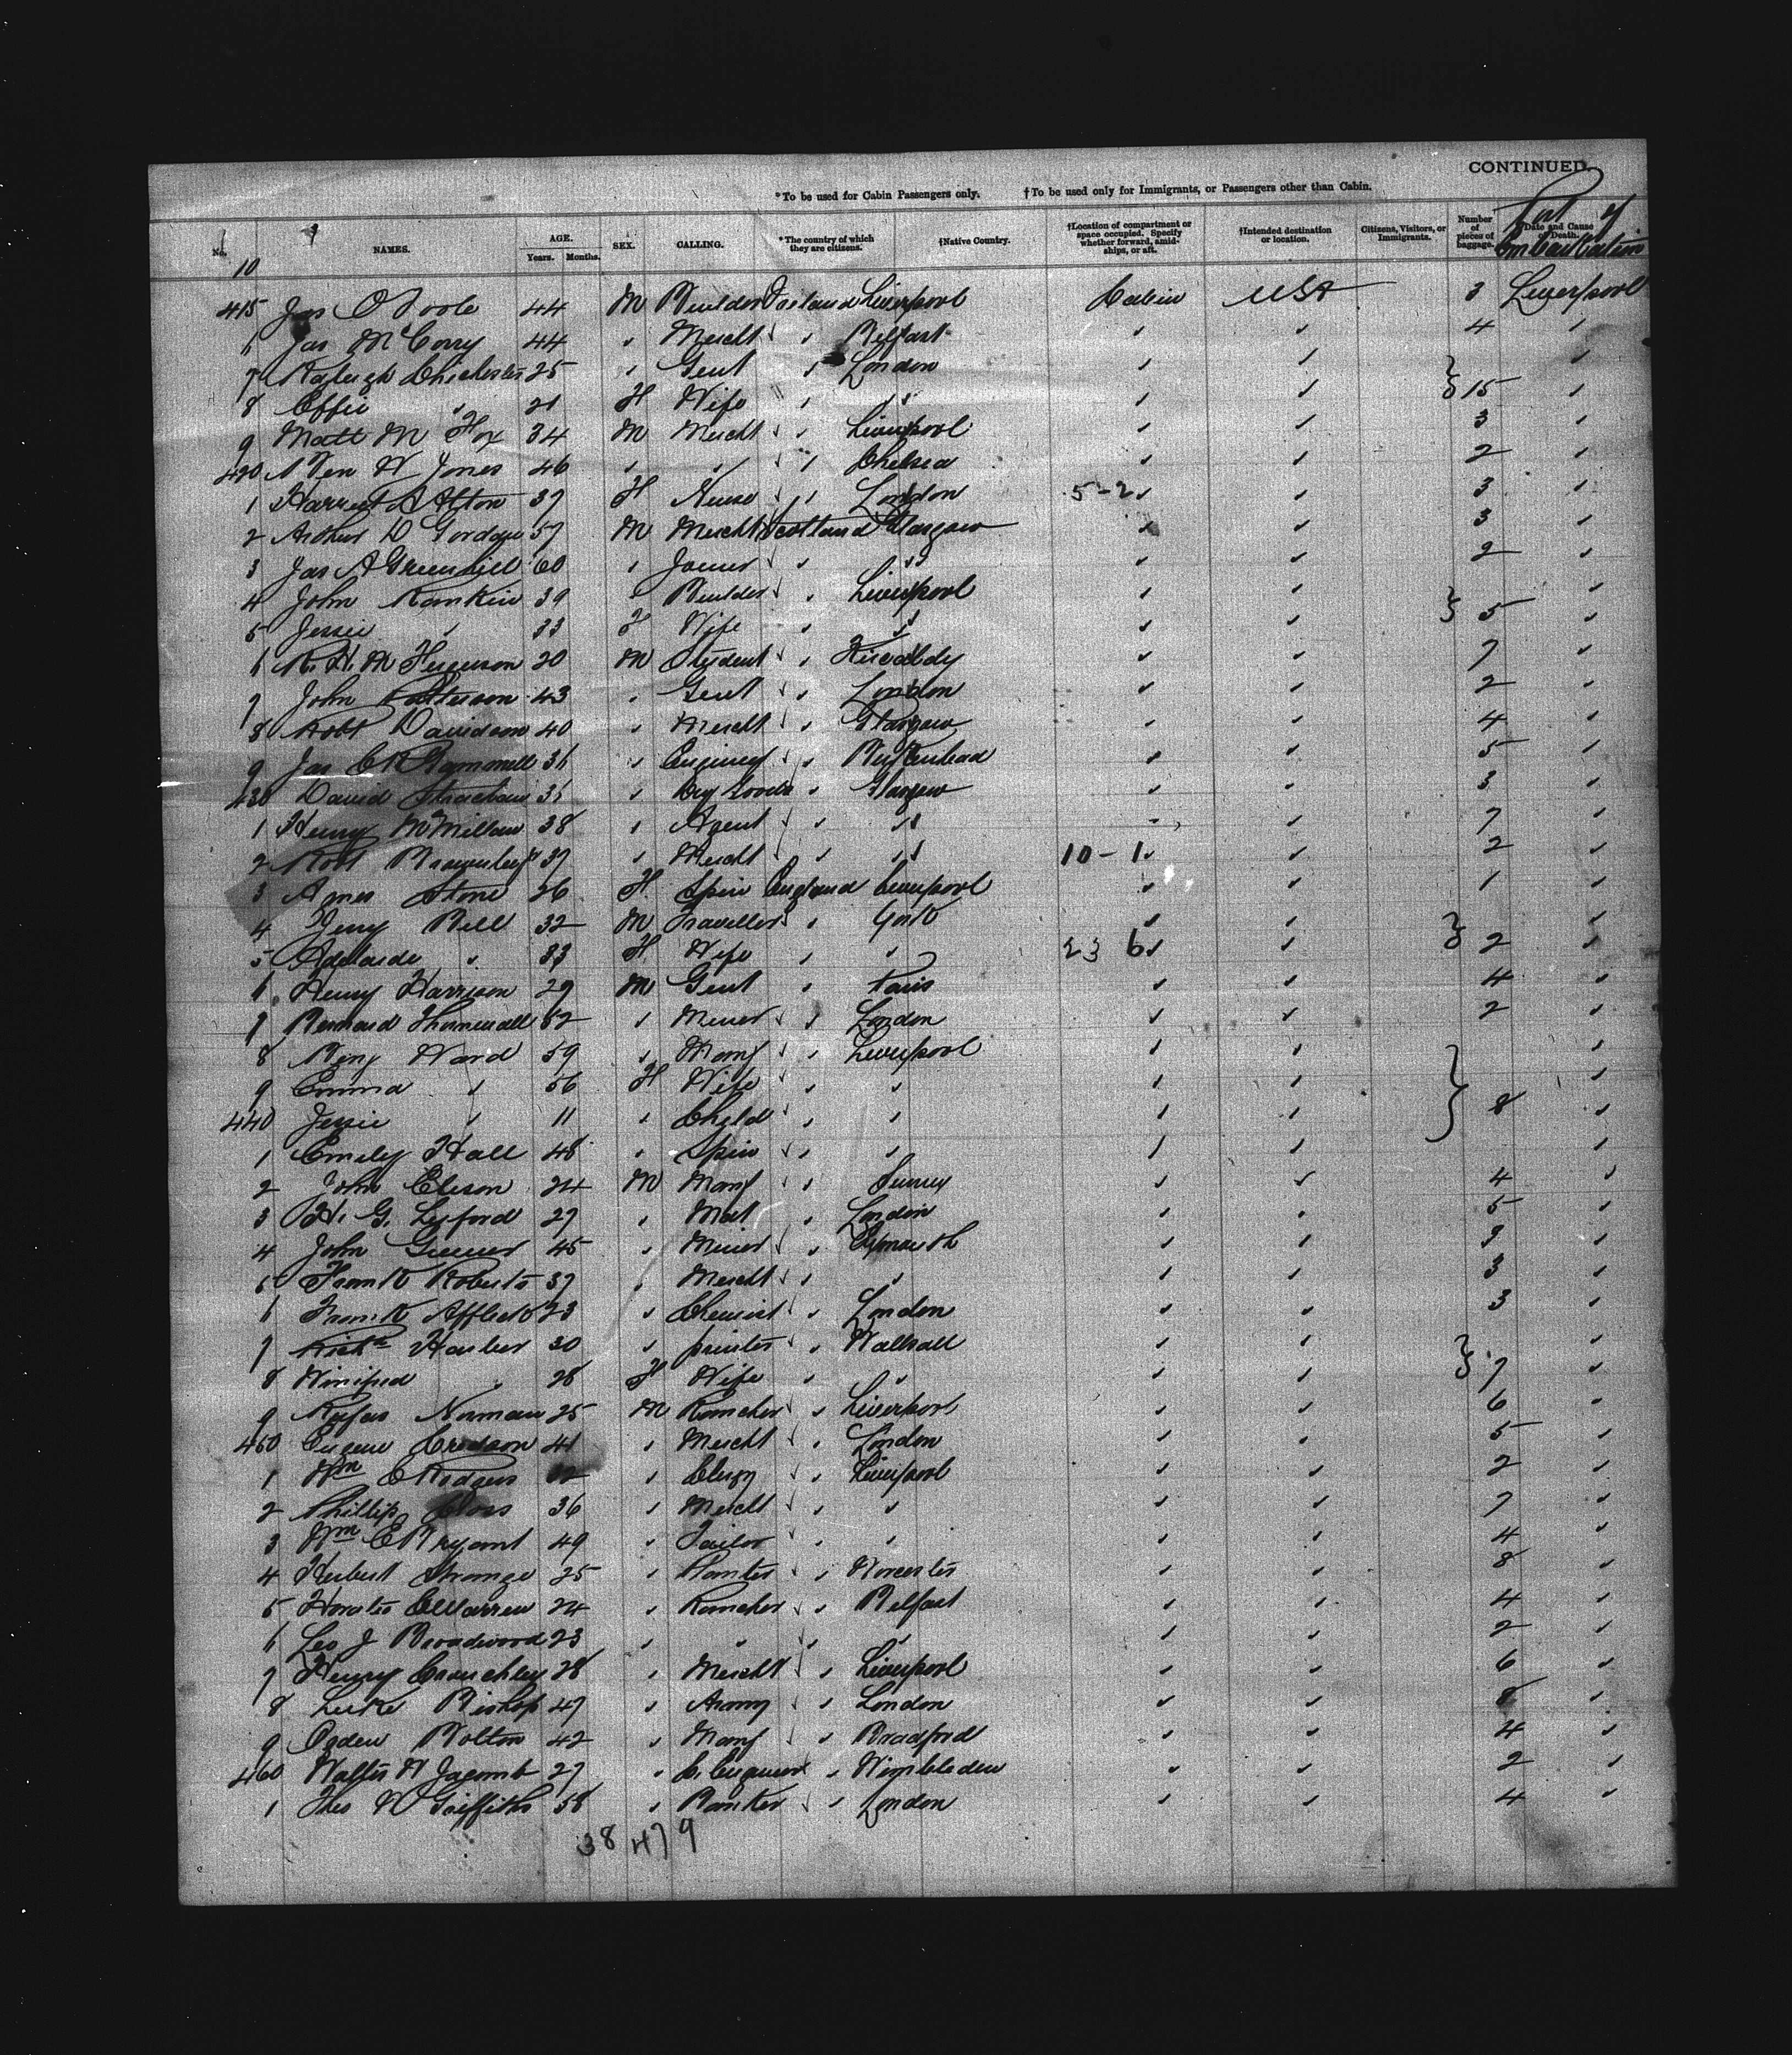 CONTINUED
*To be used for Cabin Passengers only. †To be used only for Immigrants, or Passengers other than Cabin.
No. NAMES. AGE. Years. Months. SEX. CALLING. *The country of which they are citizens. †Native Country. †Location of compartment or space occupied. Specify whether forward, amidships, or aft. †Intended destination or location. Citizens, Visitors, or Immigrants. Number of pieces of baggage. Date and Cause of Death. Port of Embarkation
10
415 Jas O Toole 44 M Builder Ireland Liverpool Cabin USA 3 Liverpool
6 Jas McCorry 44 " Mercht " Belfast " " 4 "
7 Raleigh Chichester 25 " Gent " London " " "
8 Effie " 21 F Wife " " " " } 15 "
9 Matt M Fox 34 M Mercht " Liverpool " " 3 "
420 W Jones 46 " " " Chelsea " " 2 "
1 Harriet A Alton 37 F Nurse " London 5-2 " " 3 "
2 Arthur D Gordon 57 M Mercht Scotland Glasgow " " 3 "
3 Jas A Greenhill 60 " Joiner " " " " 2 "
4 John Rankin 39 " Builder " Liverpool " " "
5 Jessie " 33 F Wife " " " " } 5 "
6 R. H. M Ferguson 20 M Student " Kircaldy " " 7 "
7 John Patterson 43 " Gent " London " " 2 "
8 Robt Davidson 40 " Mercht " Glasgow " " 4 "
9 Jas 36 " Engineer " Birkenhead " " 5 "
430 David Strachan 35 " Dry Goods " Glasgow " " 3 "
1 Henry McMillan 38 " Agent " " " " 7 "
2 Robt 37 " Mercht " " 10-1 " " 2 "
3 Agnes Stone 26 F Spin England Liverpool " " 1 "
4 Bell 32 M Traveller " York " " "
5 Adelaide " 33 F Wife " " 23 6 " " } 2 "
6 Henry Harrison 29 M Gent " Paris " " 4 "
7 Bernard 52 " Miner " London " " 2 "
8 Benj Ward 59 " Manf " Liverpool " " "
9 Emma " 56 F Wife " " " " "
440 Jessie " 11 " Child " " " " } 8 "
1 Emily Hall 48 " Spin " " " " "
2 John Elison 24 M Manf " Surrey " " 4 "
3 H. G. 27 " " London " " 5 "
4 John 45 " Miner " " " "
5 Frank Roberts 37 " Mercht " " " " 3 "
6 Frank Affleck 23 " Chemist " London " " 3 "
7 Richd Harber 30 " printer " Walsall " " "
8 Winifred " 28 F Wife " " " " } 7 "
9 Rufus Norman 25 M Rancher " Liverpool " " 6 "
450 Eugene 41 " Mercht " London " " 5 "
1 Wm C Rodgers " Clergy " Liverpool " " 2 "
2 Phillip 36 " Mercht " " " " 7 "
3 Wm E Bryant 49 " Tailor " " " " 4 "
4 Herbert Strange 25 " Planter " Worcester " " 8 "
5 Horatio C Warren 24 " Rancher " Belfast " " 4 "
6 Leo J Broadwood 23 " " " " " " 2 "
7 Henry 28 " Mercht " Liverpool " " 6 "
8 Luke Bishop 47 " Army " London " " 8 "
9 Ogden Bolton 42 " Manf " Bradford " " 4 "
460 Walter W Jacomb 27 " C. Engineer " Wimbledon " " 2 "
1 Thos W Griffiths 58 " Banker " London " " 4 "
38 479